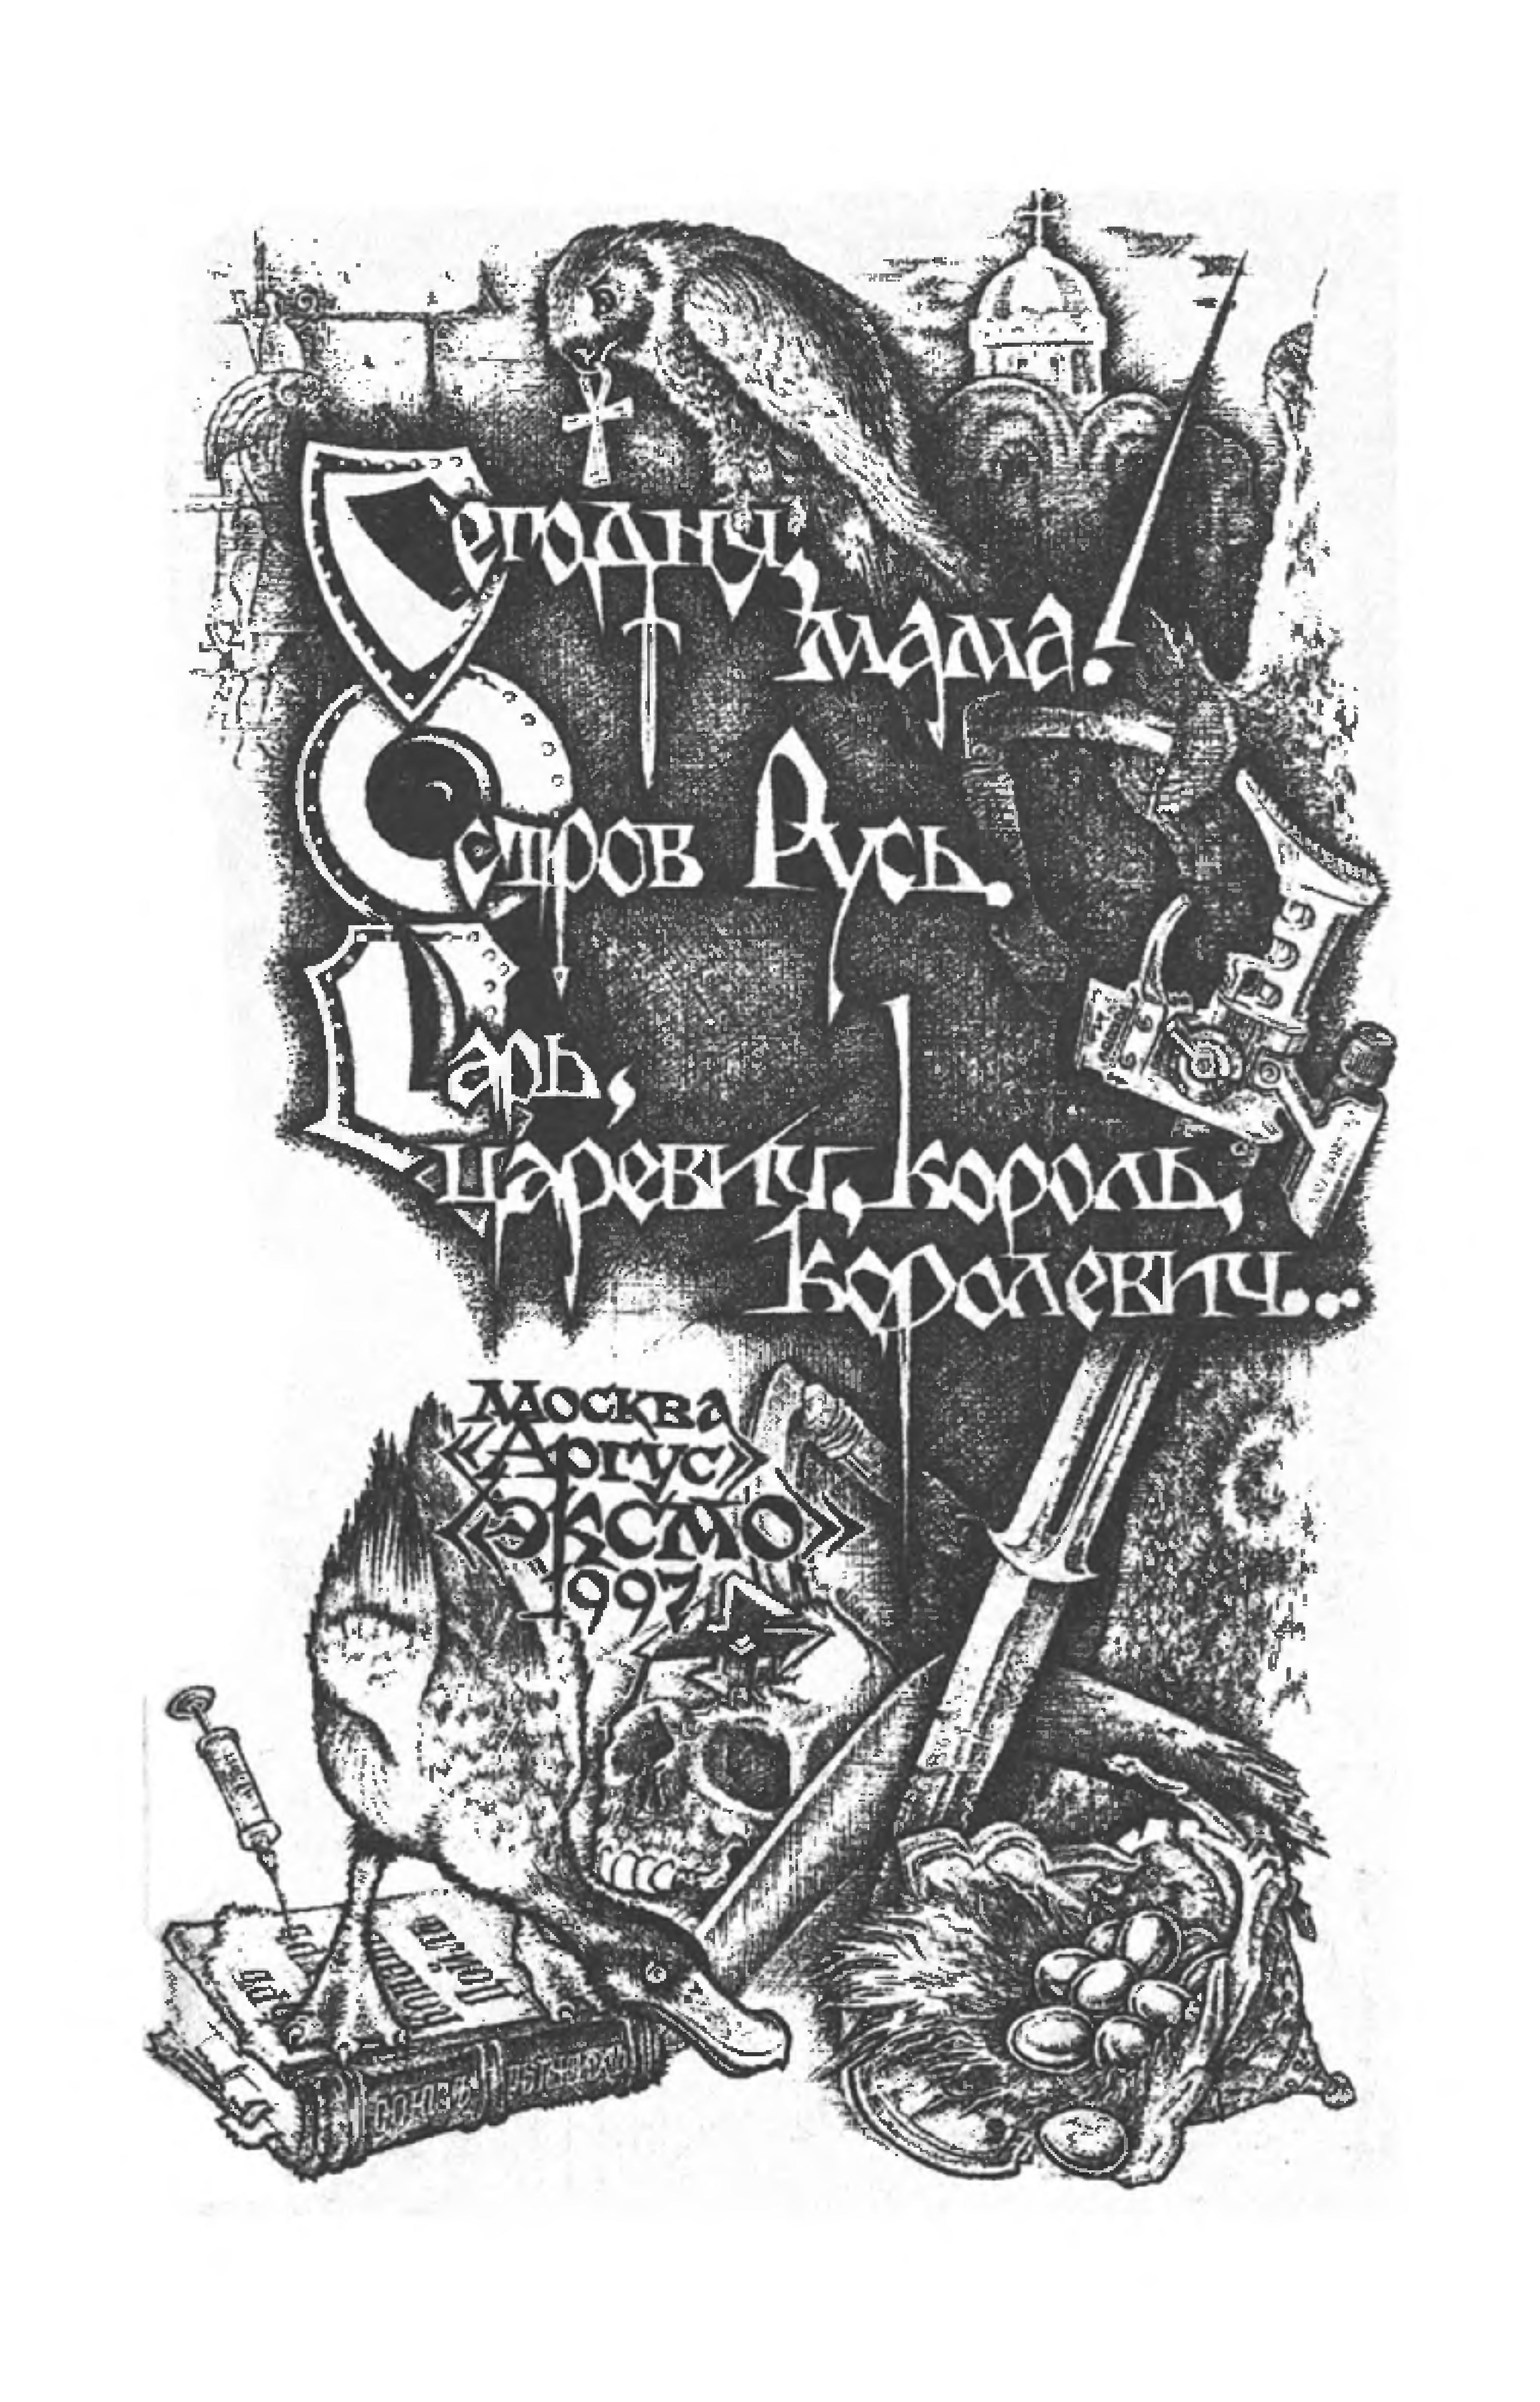 Сегодня,
мама!
Остров Русь.
Царь,
царевич, король,
королевич...
Москва
«Аргус»
«ЭКСМО»
1997